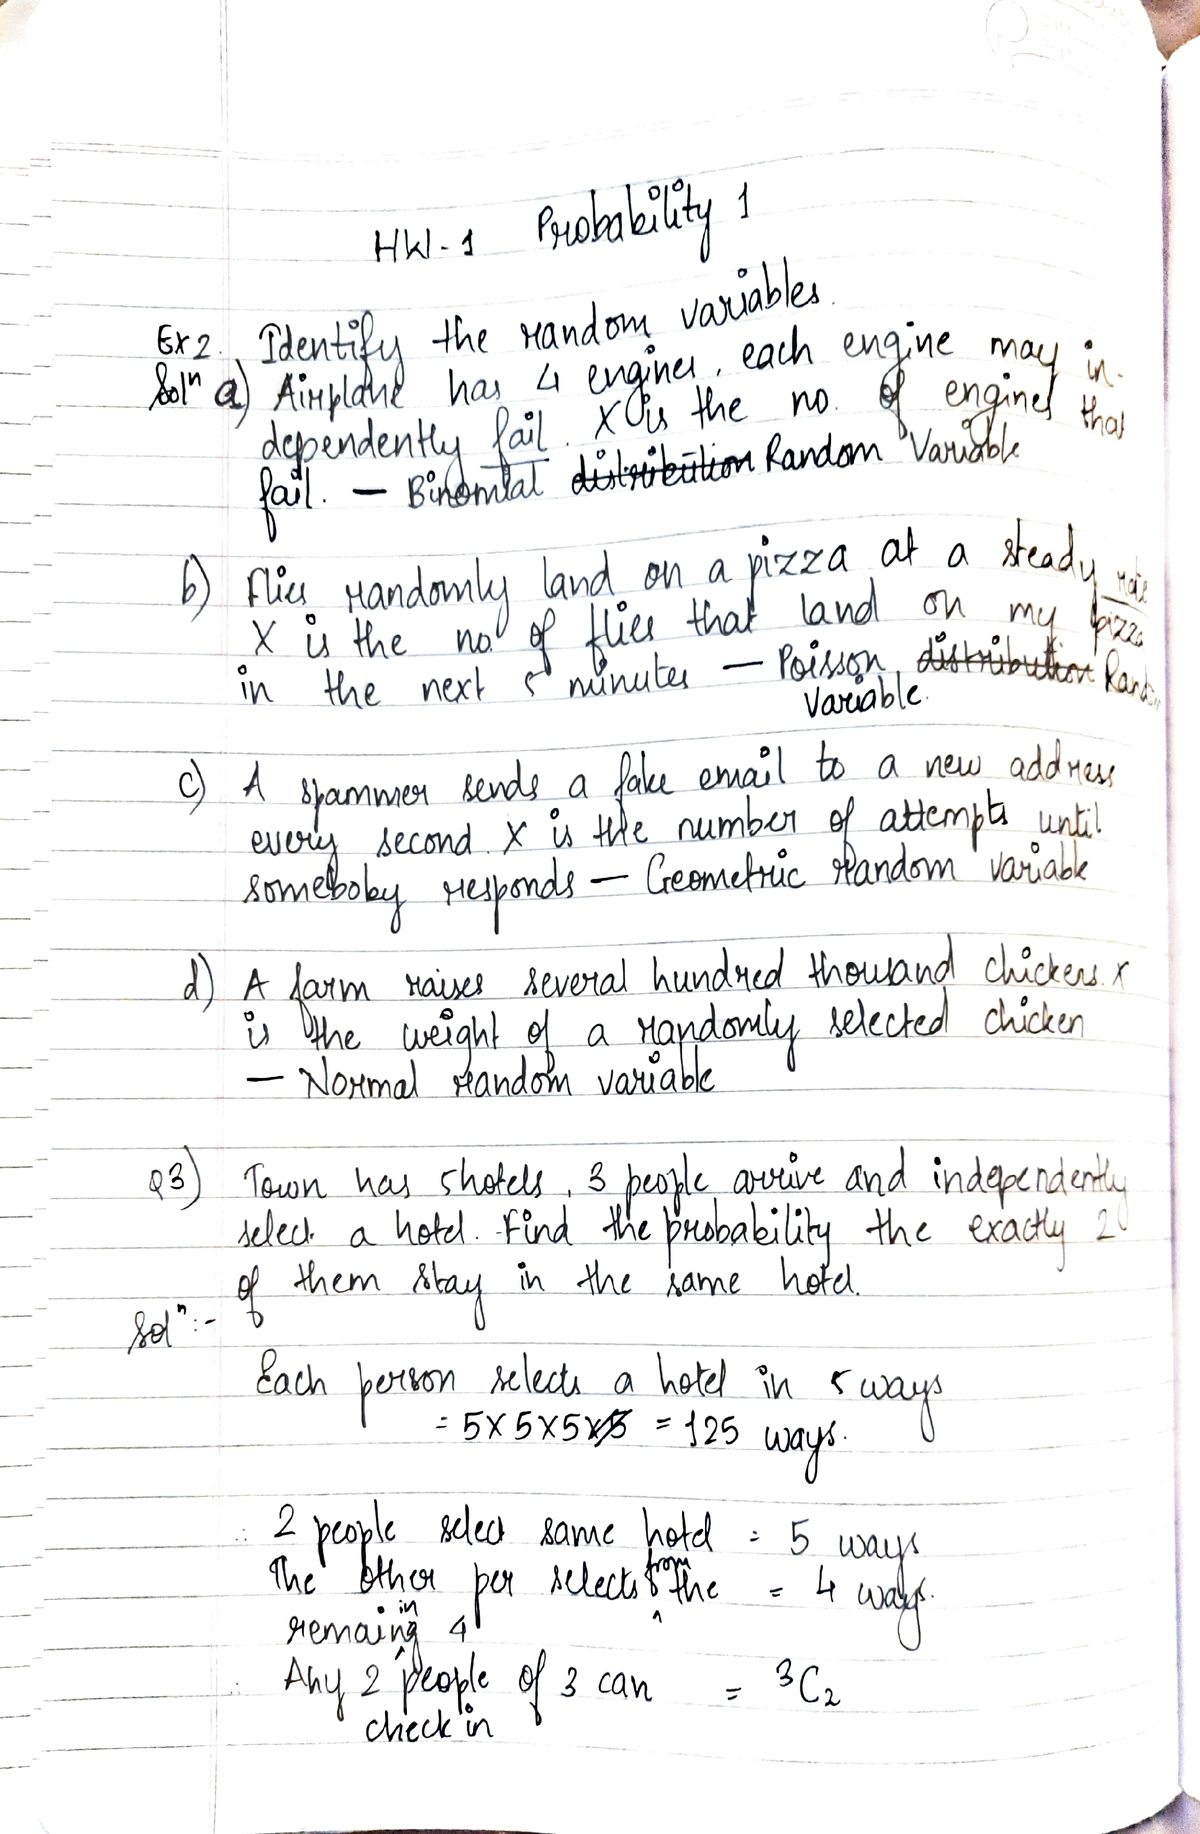 HW-1 Probability 1
Ex2. Identify the random variables.
Solⁿ a) Airplane has 4 engines, each engine may in-
dependently fail. X is the no. of engines that
fail. — Binomial distribution Random Variable
b) Flies randomly land on a pizza at a steady rate
X is the no. of flies that land on my pizza
in the next 5 minutes — Poisson distribution Random
Variable.
c) A spammer sends a fake email to a new address
every second. X is the number of attempts until
someboby responds — Geometric Random variable
d) A farm raises several hundred thousand chickens. X
is the weight of a randomly selected chicken
— Normal random variable
Q3) Town has 5hotels, 3 people arrive and independently
select a hotel. Find the probability the exactly 2
of them stay in the same hotel.
Solⁿ:-
Each person selects a hotel in 5 ways
= 5×5×5 = 125 ways.
∴ 2 people select same hotel = 5 ways
The other per selects from the = 4 ways.
remaining 4
∴ Any 2 people of 3 can = ³C₂
check in